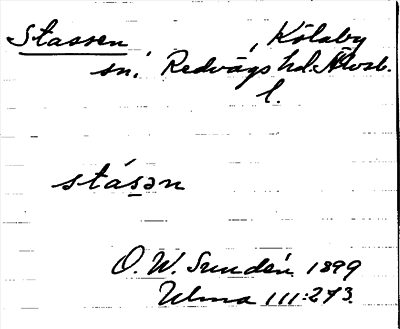 Stassen, Kölaby
sn. Redvägs hd. Älvsb.
l.
stásən
O. W. Sundén 1899
Ulma 111:273.